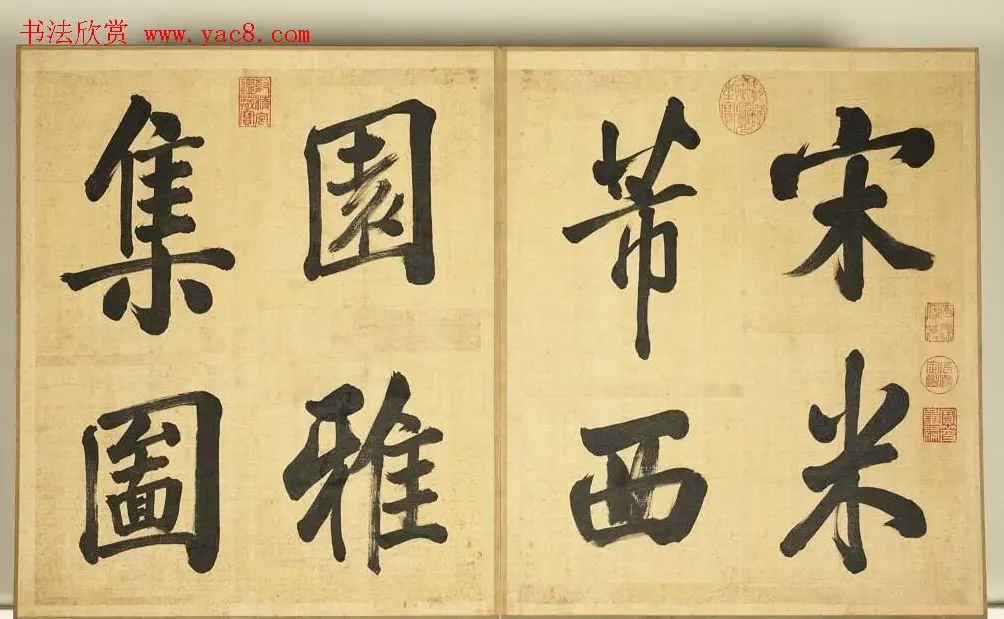 书法欣赏 www.yac8.com
宋米
芾西
園雅
集圖